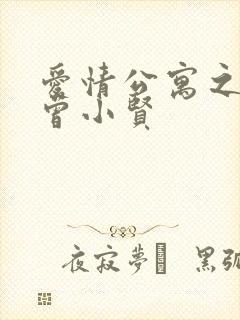 愛情公寓之
曾小賢
夜寂夢 黑弧